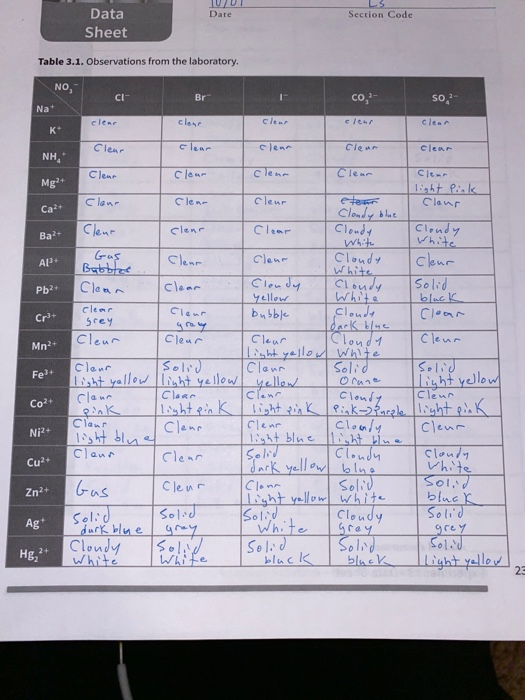 Data
Sheet
10/01
Date
L3
Section Code
Table 3.1. Observations from the laboratory.
NO₃⁻
Na⁺
Cl⁻ Br⁻ I⁻ CO₃²⁻ SO₄²⁻
K⁺ clear clear clear clear clear
NH₄⁺ Clear clear clear Clear clear
Mg²⁺ Clear Clear Clear Clear Clear
light Pink
Ca²⁺ Clear Clear Clear Clear Clear
Cloudy blue
Ba²⁺ Clear Clear Clear Cloudy Cloudy
White White
Al³⁺ Gas Clear Clear Cloudy Clear
Bubbles White
Pb²⁺ Clear Clear Cloudy Cloudy Solid
yellow White black
Cr³⁺ Clear Clear bubble Cloudy Clear
grey gray dark blue
Mn²⁺ Clear Clear Clear Cloudy Clear
light yellow White
Fe³⁺ Clear Solid Clear Solid Solid
light yellow light yellow yellow Orane light yellow
Co²⁺ Clear Clear Clear Cloudy Clear
pink light pink light pink Pink→Purple light pink
Ni²⁺ Clear Clear Clear Cloudy Clear
light blue light blue light blue
Cu²⁺ Clear Clear Solid Cloudy Cloudy
dark yellow blue white
Zn²⁺ Gas Clear Clear Solid Solid
light yellow White black
Ag⁺ Solid Solid Solid Cloudy Solid
dark blue gray White gray grey
Hg₂²⁺ Cloudy Solid Solid Solid Solid
White White black black light yellow